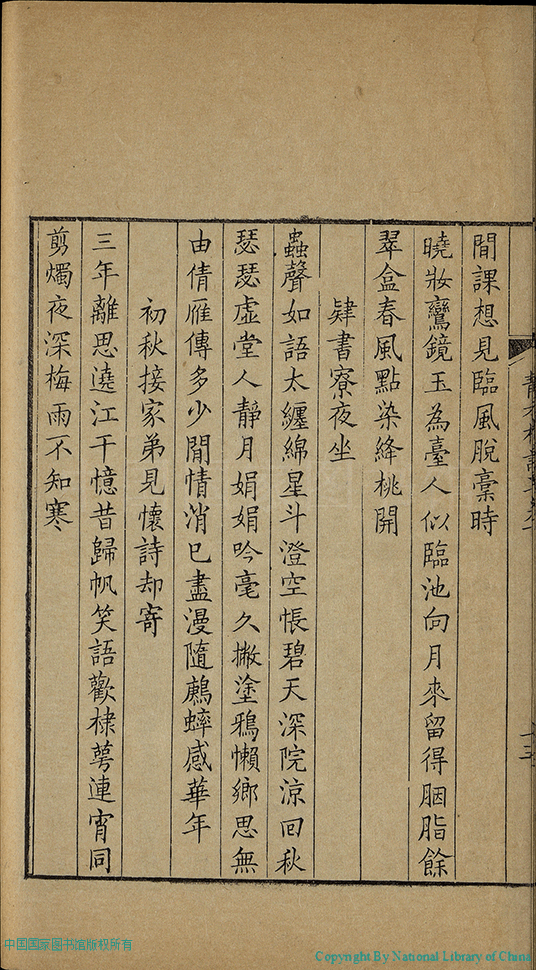 閒課想見臨風脫稾時
曉妝鸞鏡玉為臺人似臨池向月來留得胭脂餘
翠盒春風點染絳桃開
肄書寮夜坐
蟲聲如語太纏綿星斗澄空悵碧天深院涼回秋
瑟瑟虛堂人靜月娟娟吟毫久撇塗鴉懶鄉思無
由倩雁傳多少閒情消已盡漫隨鷓蟀感華年
初秋接家弟見懷詩却寄
三年離思遶江干憶昔歸帆笑語歡棣萼連宵同
剪燭夜深梅雨不知寒
中国国家图书馆版权所有
Copyright By National Library of China